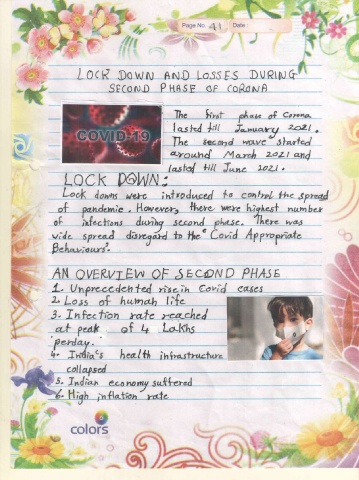 Page No. 41 Date :
LOCK DOWN AND LOSSES DURING
SECOND PHASE OF CORONA
COVID-19
The first phase of Corona
lasted till January 2021.
The second wave started
around March 2021 and
lasted till June 2021.
LOCK DOWN:
Lock downs were introduced to control the spread
of pandemic. However, there were highest number
of infections during second phase. There was
wide spread disregard to the "Covid Appropriate
Behaviours".
AN OVERVIEW OF SECOND PHASE
1. Unprecedented rise in Covid cases
2. Loss of human life
3. Infection rate reached
at peak of 4 Lakhs
perday.
4. India's health infrastructure
collapsed
5. Indian economy suffered
6. High inflation rate
colors